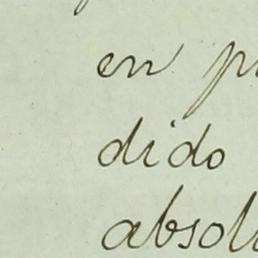 en p
dido
absol